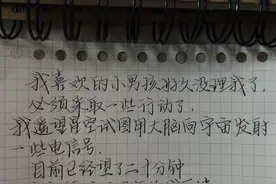 我喜欢的小男孩好久没理我了,
必须采取一些行动了,
我遥望星空试图用大脑向宇宙发射
一些电信号.
目前已经望了二十分钟